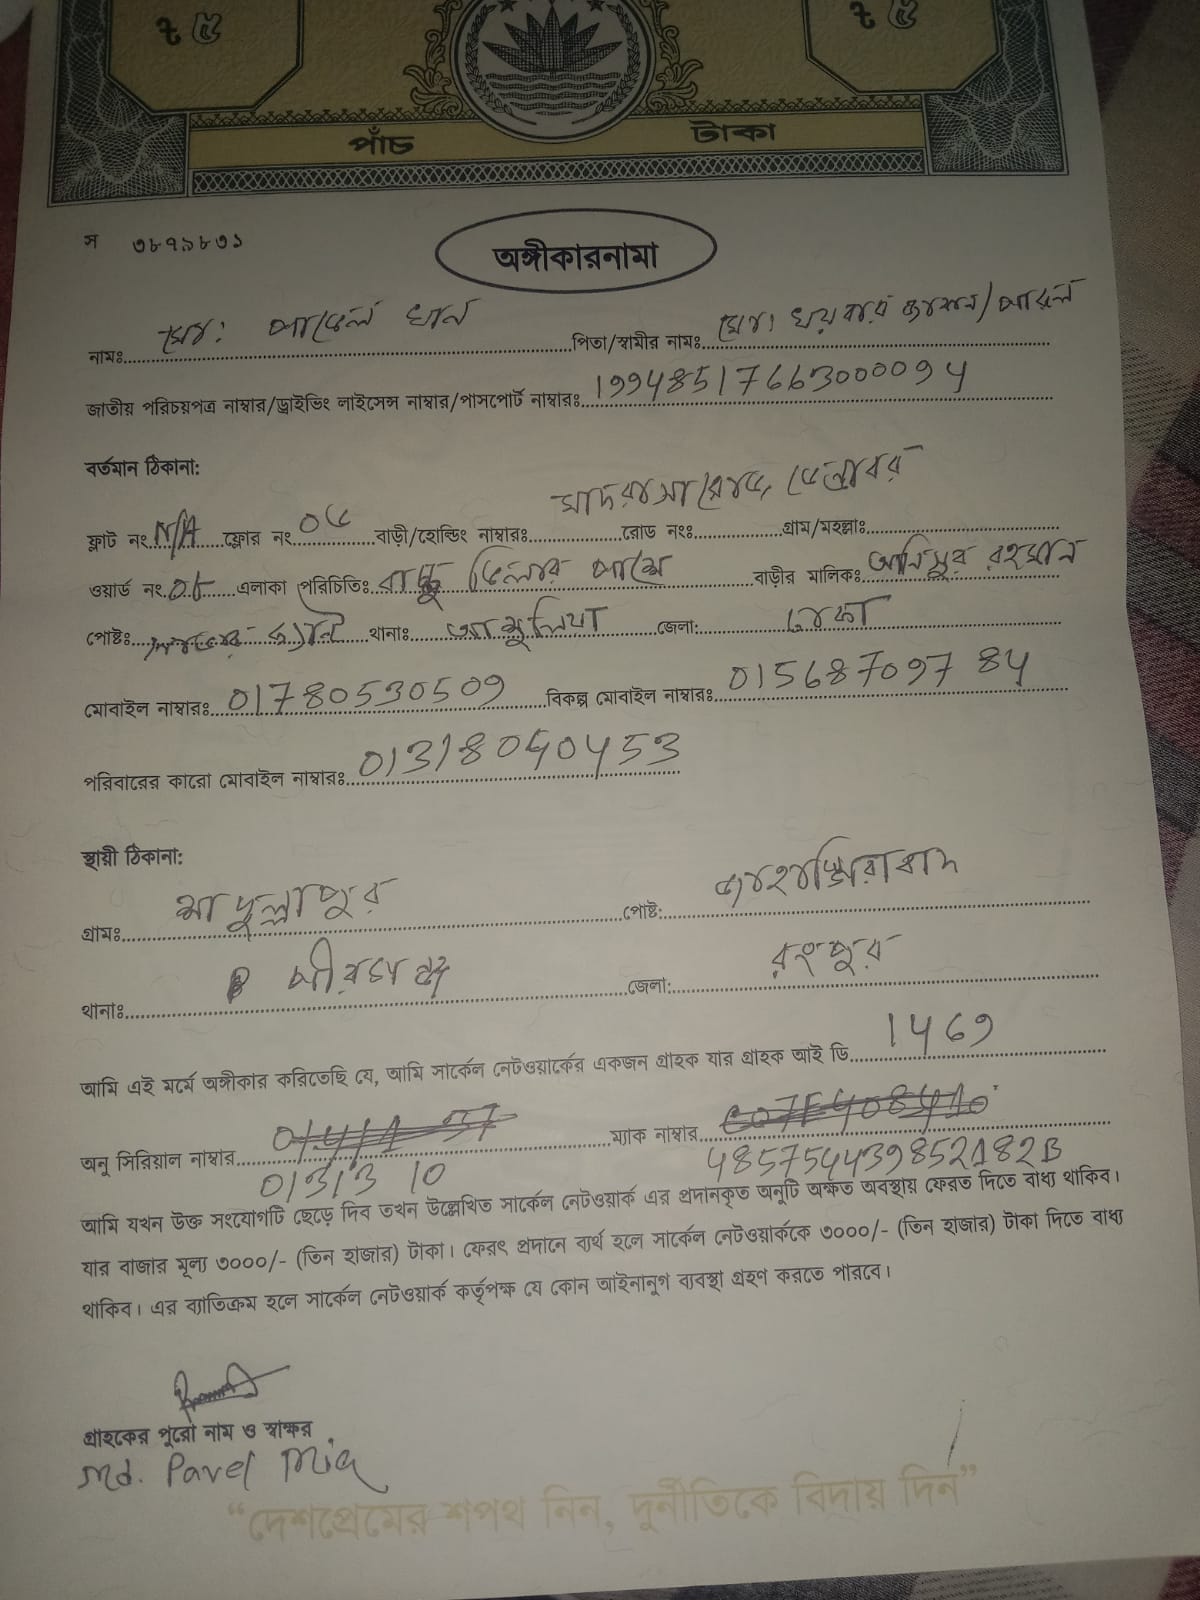 ট ৫ ট ৫
পাঁচ টাকা
স ৩৮৭৯৮৩১
অঙ্গীকারনামা
নামঃ মোঃ পাভেল পিতা/স্বামীর নামঃ মোঃ
জাতীয় পরিচয়পত্র নাম্বার/ড্রাইভিং লাইসেন্স নাম্বার/পাসপোর্ট নাম্বারঃ
বর্তমান ঠিকানা:
ফ্লাট নং N/A ফ্লোর নং বাড়ী/হোল্ডিং নাম্বারঃ রোড নংঃ গ্রাম/মহল্লাঃ
ওয়ার্ড নং ০৮ এলাকা পরিচিতিঃ ভিলার পাশে বাড়ীর মালিকঃ আনিসুর রহমান
পোষ্টঃ থানাঃ আশুলিয়া জেলা: ঢাকা
মোবাইল নাম্বারঃ 01780530509 বিকল্প মোবাইল নাম্বারঃ
পরিবারের কারো মোবাইল নাম্বারঃ
স্থায়ী ঠিকানা:
গ্রামঃ সাদুল্লাপুর পোষ্ট:
থানাঃ জেলা: রংপুর
আমি এই মর্মে অঙ্গীকার করিতেছি যে, আমি সার্কেল নেটওয়ার্কের একজন গ্রাহক যার গ্রাহক আই ডি
অনু সিরিয়াল নাম্বার ম্যাক নাম্বার
013/3/10 485754439852A82B
আমি যখন উক্ত সংযোগটি ছেড়ে দিব তখন উল্লেখিত সার্কেল নেটওয়ার্ক এর প্রদানকৃত অনুটি অক্ষত অবস্থায় ফেরত দিতে বাধ্য থাকিব।
যার বাজার মূল্য ৩০০০/- (তিন হাজার) টাকা। ফেরৎ প্রদানে ব্যর্থ হলে সার্কেল নেটওয়ার্ককে ৩০০০/- (তিন হাজার) টাকা দিতে বাধ্য
থাকিব। এর ব্যাতিক্রম হলে সার্কেল নেটওয়ার্ক কর্তৃপক্ষ যে কোন আইনানুগ ব্যবস্থা গ্রহণ করতে পারবে।
গ্রাহকের পুরো নাম ও স্বাক্ষর
Md. Pavel Mia
“দেশপ্রেমের শপথ নিন, দুর্নীতিকে বিদায় দিন”